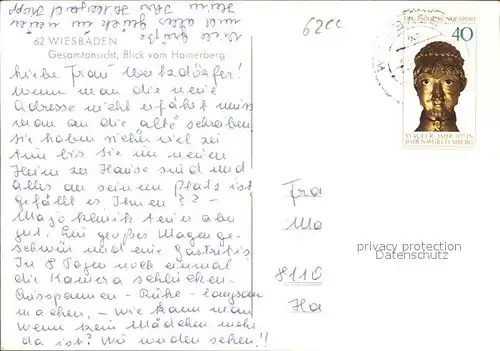 Viele Grüße
und alles gute im neuen
Heim Ihre
62 WIESBADEN
Gesamtansicht, Blick vom Hainerberg
Liebe Frau
Wenn man die neue
Adresse nicht erfährt muss
man an die alte schreiben
sie haben sicher viel zu
tun bis sie im neuen
Heim zu Hause sind und
alles an seinem Platz ist
gefällt es Ihnen? ? –
gut. Ein großes Magenge-
schwür und eine Gastritis
In 8 Tagen noch einmal
die Kamera schlucken.
Ausspannen – Ruhe – langsam
machen, – wie kann man
wenn kein Mädchen mehr
da ist? Wir werden sehen!!
DEUTSCHE BUNDESPOST
40
STAUFER-JAHR 1977 IN
BADEN-WÜRTTEMBERG
Fra
Ma
8110
Ha
privacy protection
Datenschutz